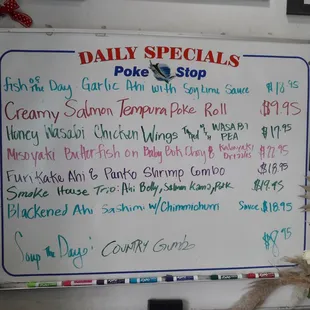 DAILY SPECIALS
Poke Stop
Fish of the Day Garlic Ahi with Soy Lime Sauce
Creamy Salmon Tempura Poke Roll $9.95
Honey Wasabi Chicken Wings WASABI PEA $17.95
Misoyaki Butterfish on Baby Bok Choy & $22.95
Furikake Ahi & Panko Shrimp Combo $18.95
Smoke House Trio: Ahi Belly, Salmon Kama, Pork $19.95
Blackened Ahi Sashimi w/ Chimmichurri Sauce $18.95
Soup the Day: COUNTRY Gumbo $8.95